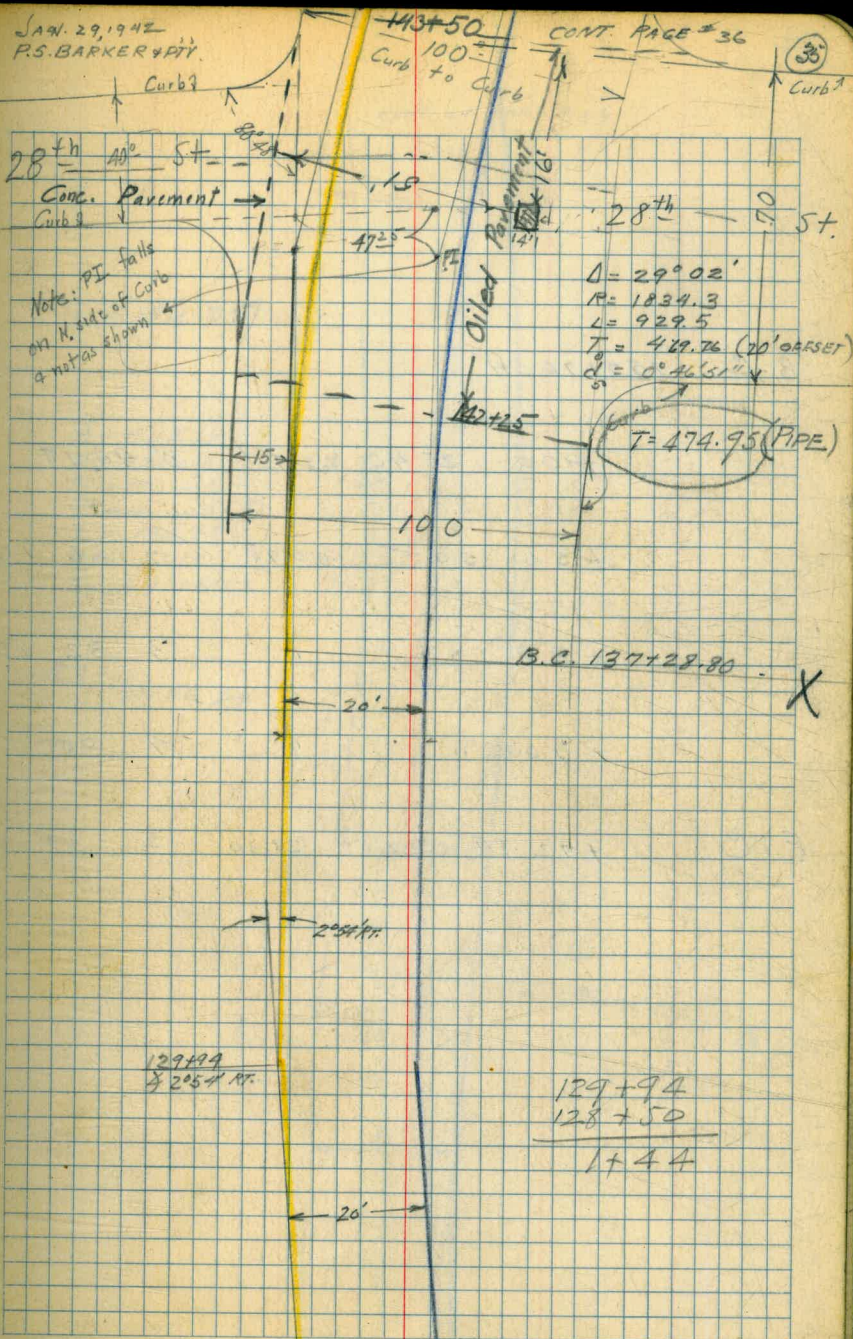 JAN. 29, 1942
P.S. BARKER & PTY.
143+50
CONT. PAGE #36
35
Curb
100
to
Curb
Curb
Curb
28th 40' St.
88°48'
Conc. Pavement
Curb
15
Oiled Pavement
16'
14'
28th St.
70
47.25
PI
Note: PI falls
on N. side of Curb
& not as shown
Δ = 29° 02'
R = 1834.3
L = 929.5
T = 479.76 (20' OFFSET)
d = 0° 46' 51"
142+25
Curb
T = 474.95 (PIPE)
15
100
B.C. 137+28.80
X
20'
2°54' RT.
129+94
∠ 2°54' RT.
129+94
128+50
1+44
20'